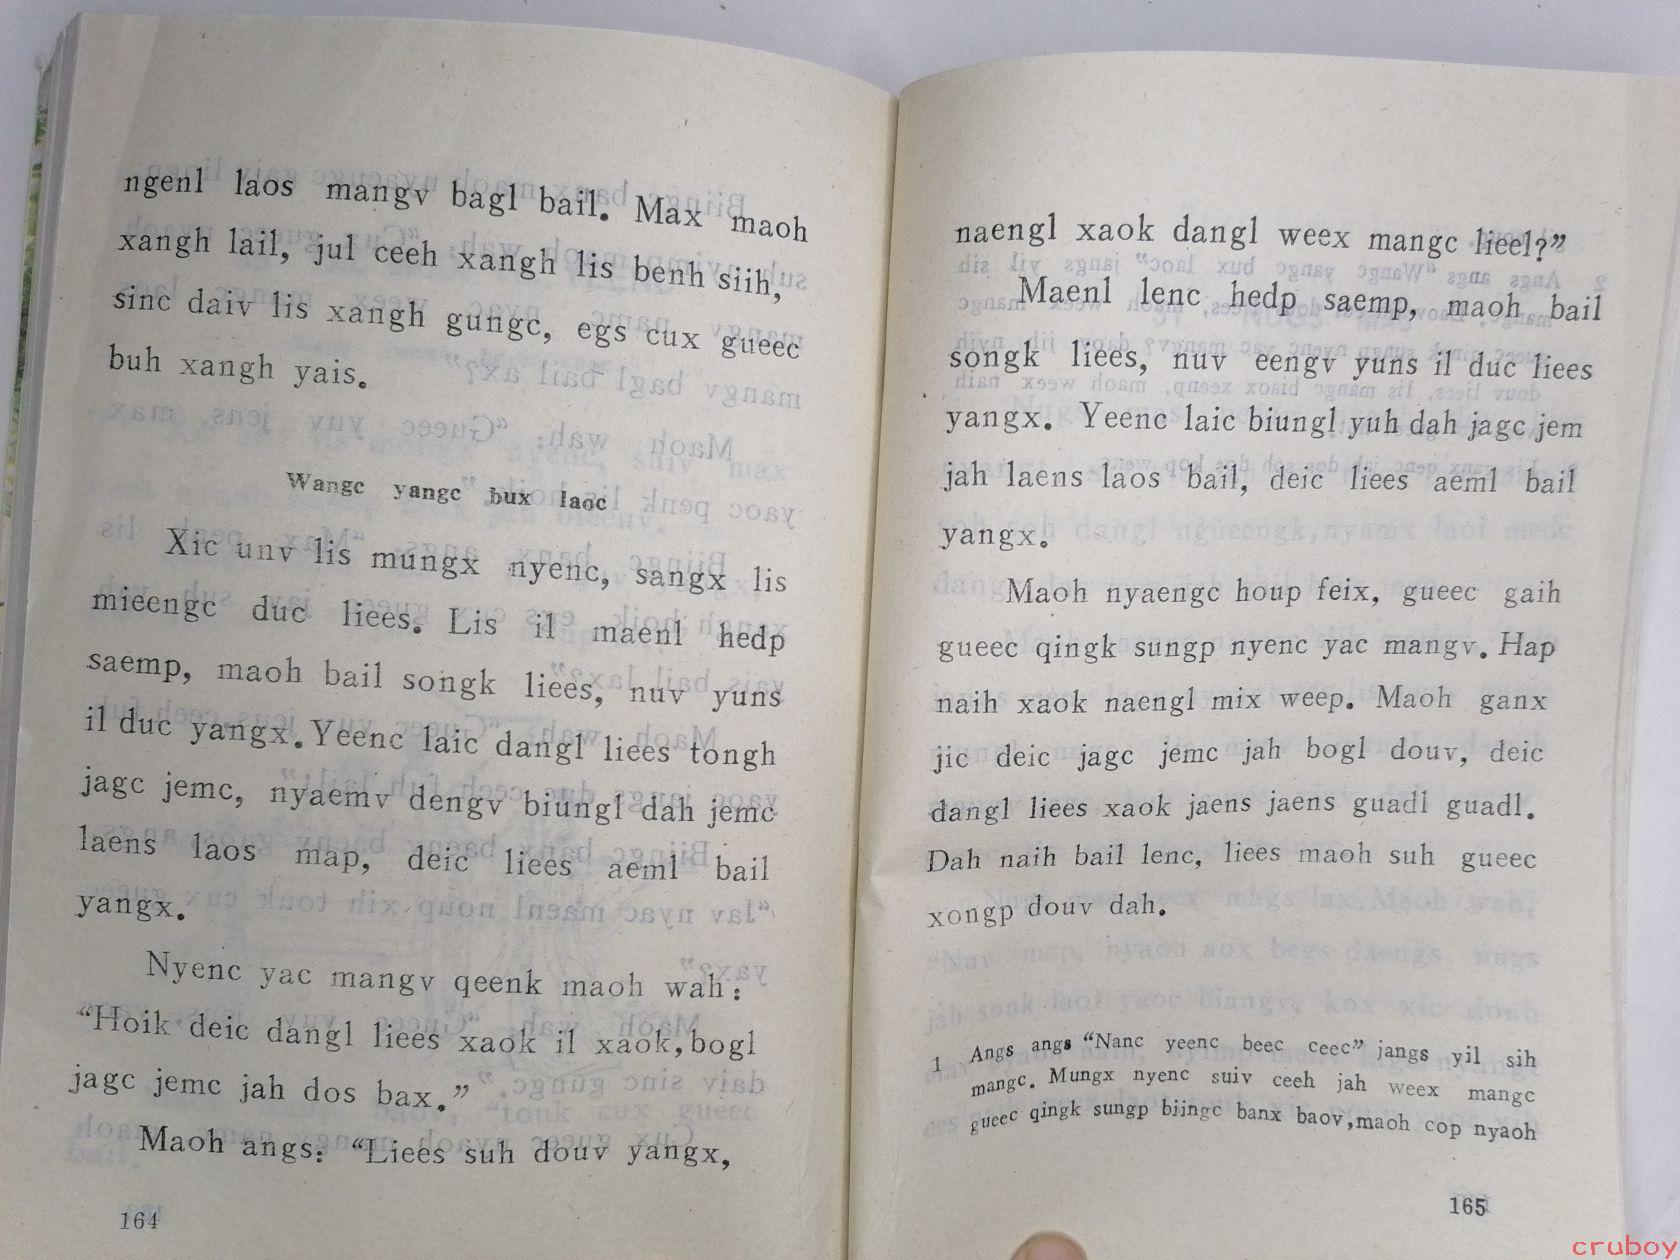 ngenl laos mangv bagl bail. Max maoh
xangh lail, jul ceeh xangh lis benh siih,
sinc daiv lis xangh gungc, egs cux gueec
buh xangh yais.
Wangc yangc bux laoc
Xic unv lis mungx nyenc, sangx lis
mieengc duc liees. Lis il maenl hedp
saemp, maoh bail songk liees, nuv yuns
il duc yangx. Yeenc laic dangl liees tongh
jagc jemc, nyaemv dengv biungl dah jemc
laens laos map, deic liees aeml bail
yangx.
Nyenc yac mangv qeenk maoh wah:
“Hoik deic dangl liees xaok il xaok, bogl
jagc jemc jah dos bax.”
Maoh angs: “Liees suh douv yangx,
164
naengl xaok dangl weex mangc lieel?”
Maenl lenc hedp saemp, maoh bail
songk liees, nuv eengv yuns il duc liees
yangx. Yeenc laic biungl yuh dah jagc jem
jah laens laos bail, deic liees aeml bail
yangx.
Maoh nyaengc houp feix, gueec gaih
gueec qingk sungp nyenc yac mangv. Hap
naih xaok naengl mix weep. Maoh ganx
jic deic jagc jemc jah bogl douv, deic
dangl liees xaok jaens jaens guadl guadl.
Dah naih bail lenc, liees maoh suh gueec
xongp douv dah.
1 Angs angs “Nanc yeenc beec ceec” jangs yil sih
mangc. Mungx nyenc suiv ceeh jah weex mangc
gueec qingk sungp biingc banx baov, maoh cop nyaoh
165
cruboy